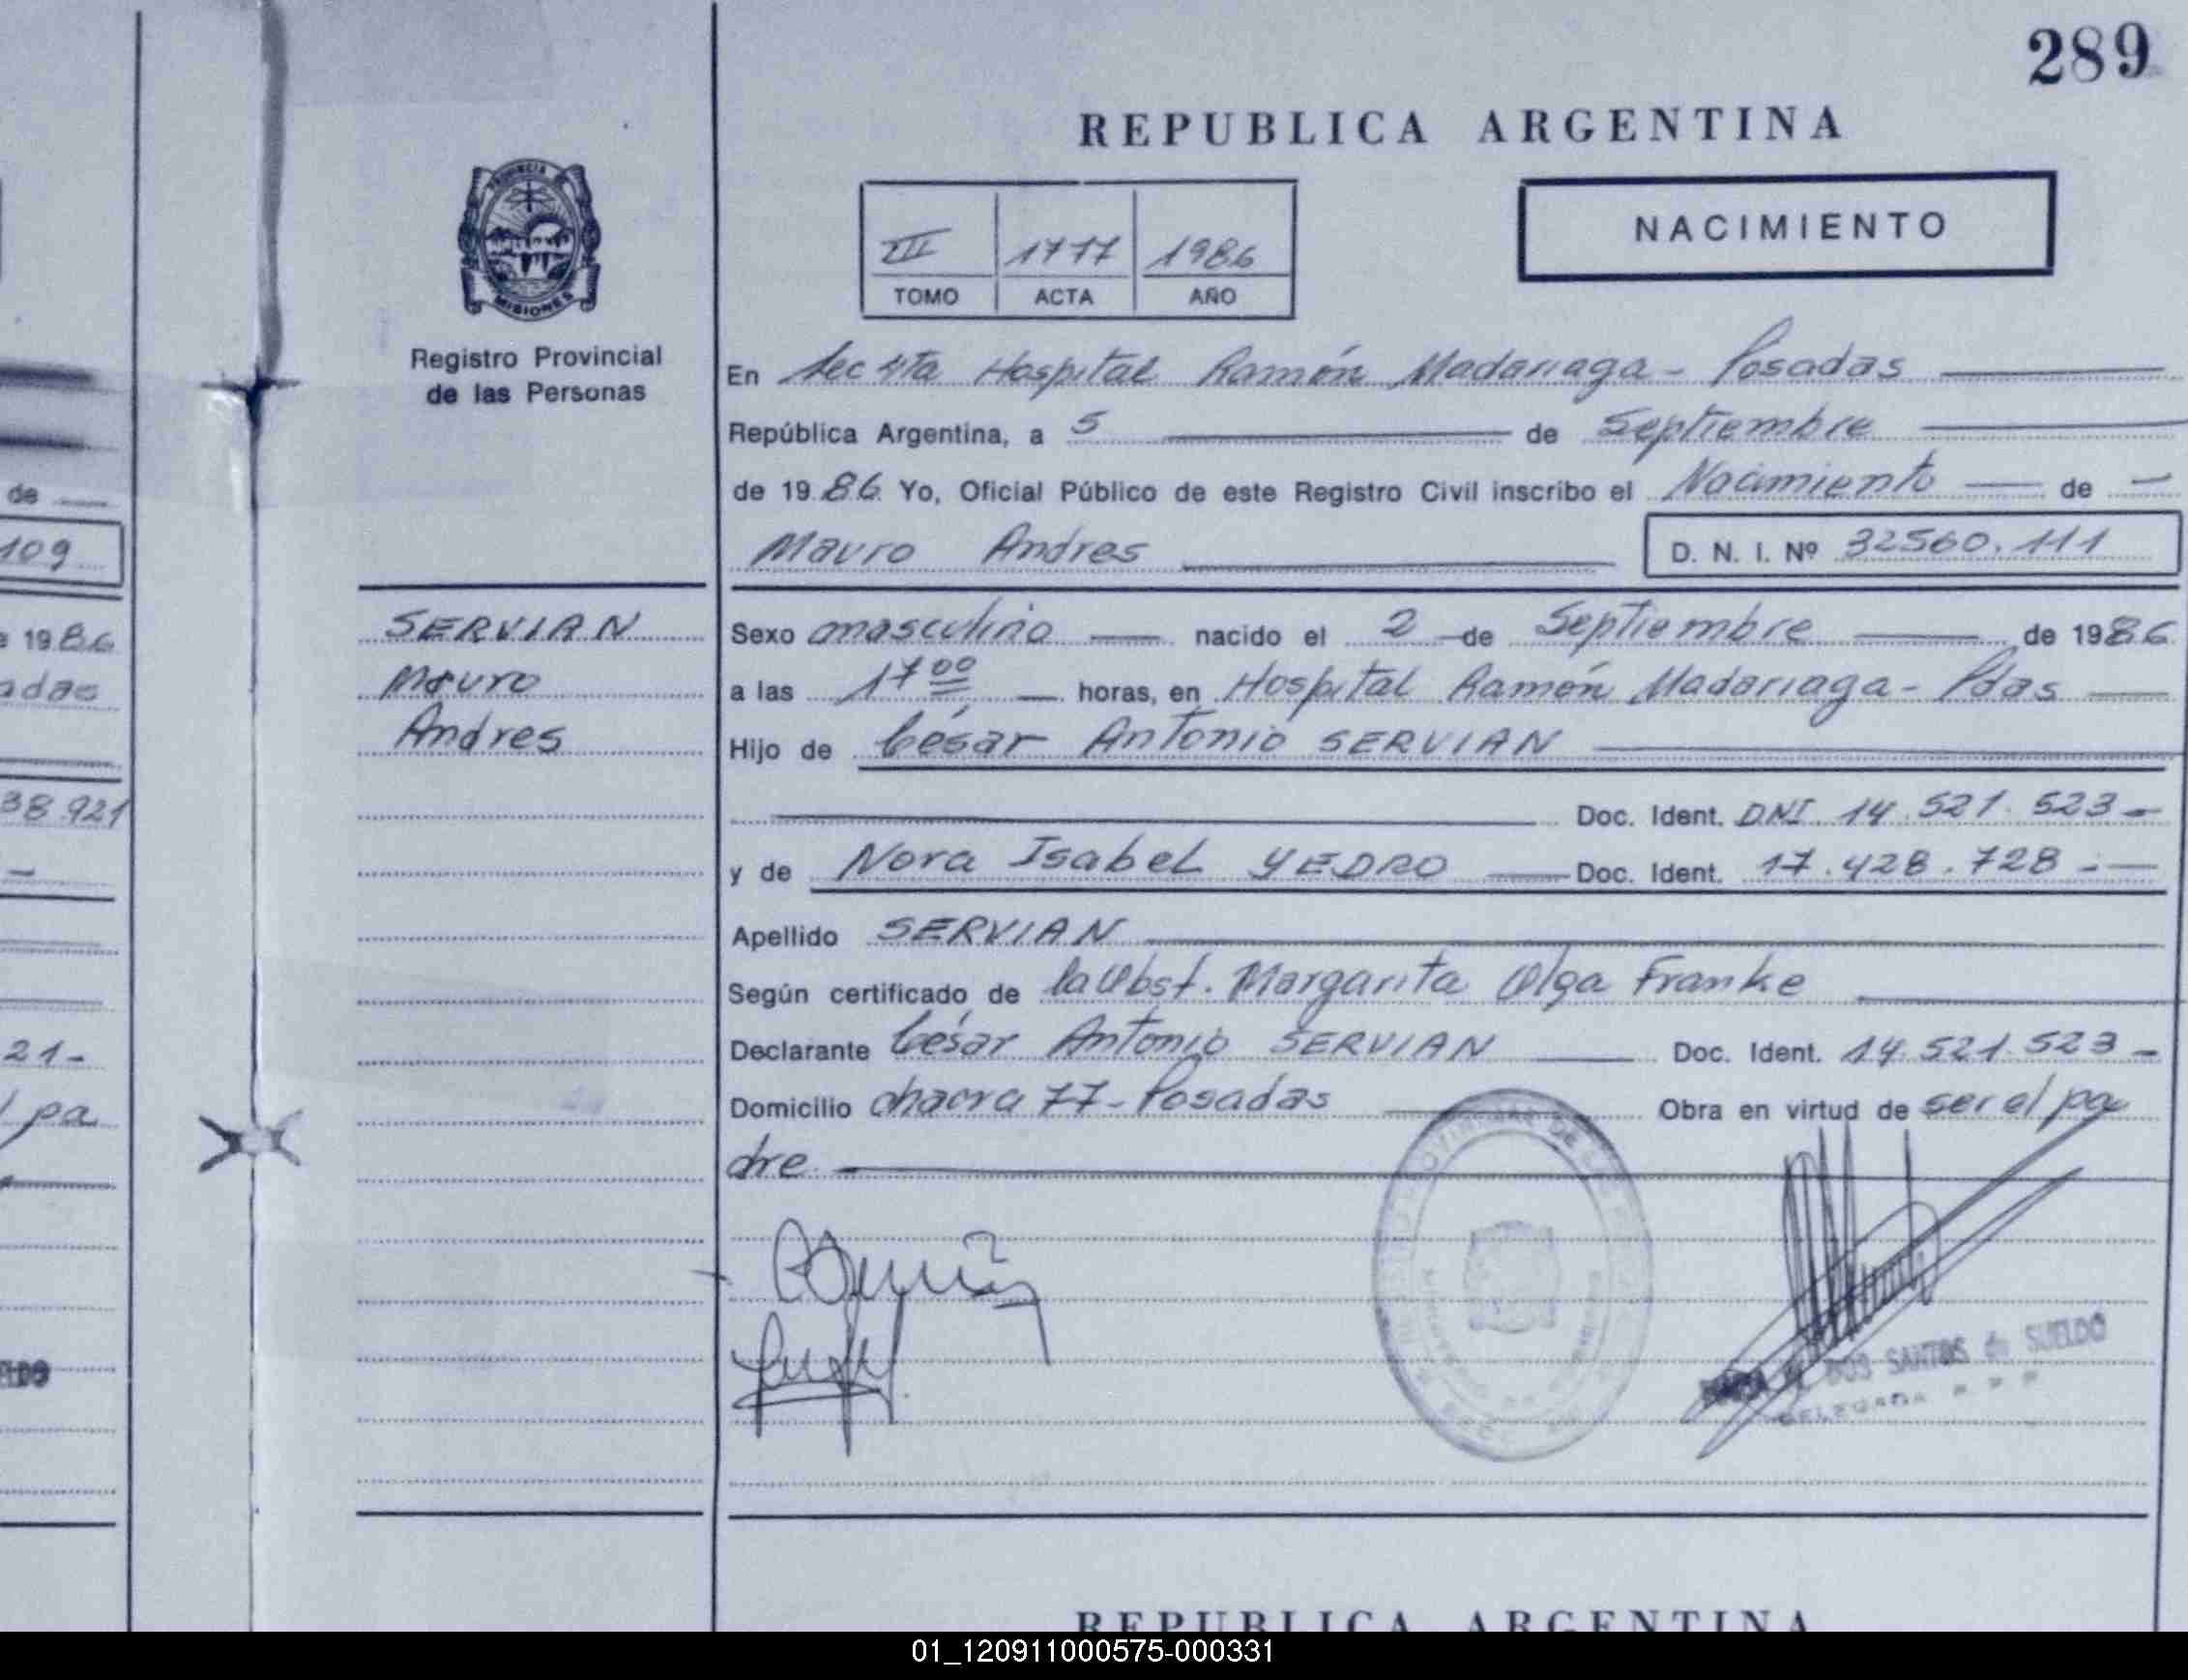 289
REPUBLICA ARGENTINA
NACIMIENTO
III 1717 1986
TOMO ACTA AÑO
PROVINCIA DE
MISIONES
Registro Provincial
de las Personas
En Sec 4ta Hospital Ramón Madariaga - Posadas
República Argentina, a 5 de Septiembre
de 1986 Yo, Oficial Público de este Registro Civil inscribo el Nacimiento de
Mauro Andres D. N. I. Nº 32560.111
SERVIAN
Mauro
Andres
Sexo masculino nacido el 2 de Septiembre de 1986
a las 17 00 horas, en Hospital Ramón Madariaga - Pdas
Hijo de César Antonio SERVIAN
Doc. Ident. DNI 14.521.523-
y de Nora Isabel YEDRO Doc. Ident. 17.428.728-
Apellido SERVIAN
Según certificado de la Obst. Margarita Olga Franke
Declarante César Antonio SERVIAN Doc. Ident. 14.521.523-
Domicilio chacra 77- Posadas Obra en virtud de ser el pa
dre
DOS SANTOS de SUELDO
DELEGADA
de
109
1986
adas
38.921
21-
pa
LDO
REPUBLICA ARGENTINA
01_120911000575-000331